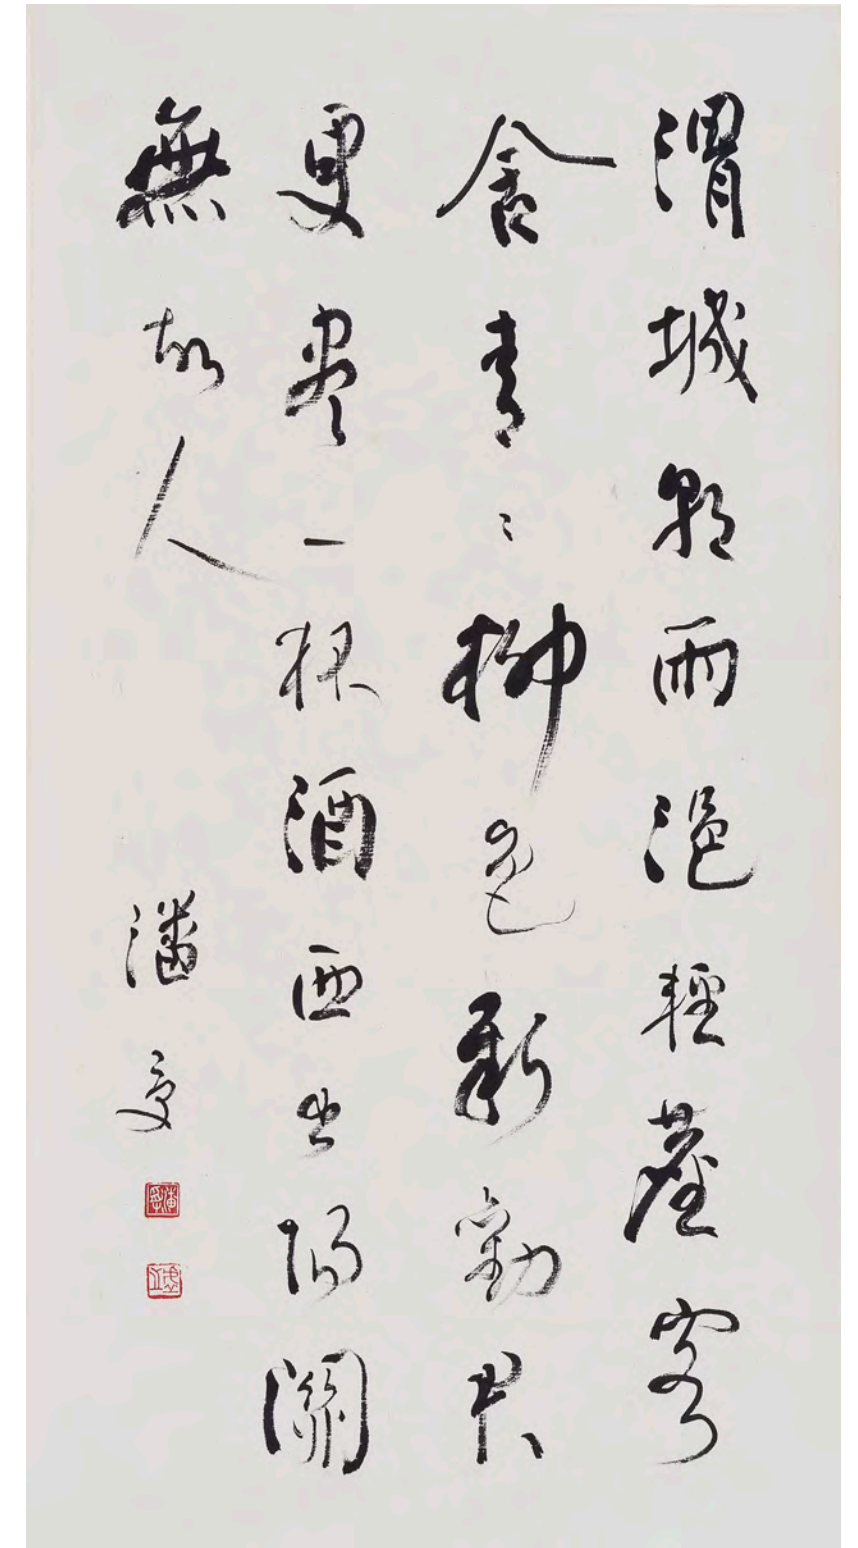 渭城朝雨浥輕塵客
舍青〻柳色新勸君
更盡一杯酒西出陽關
無故人
潘受